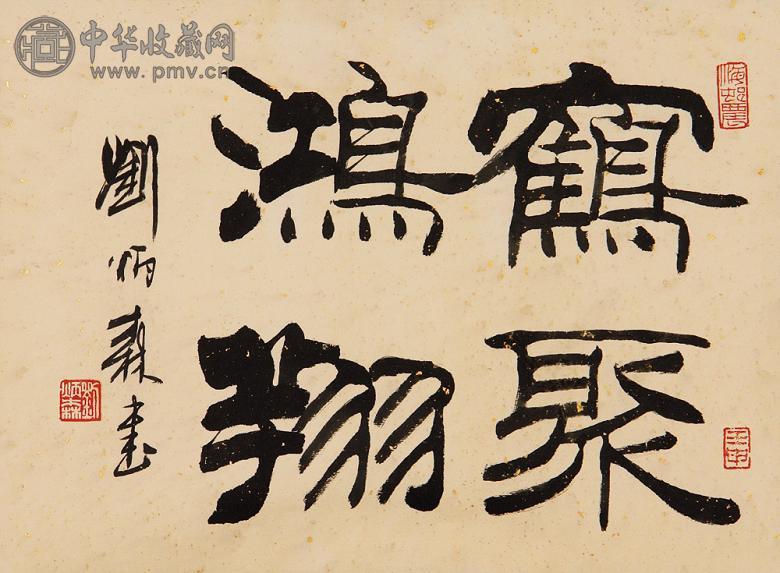 中华收藏网
www.pmv.cn
鶴聚
鴻翔
劉炳森書
劉炳森